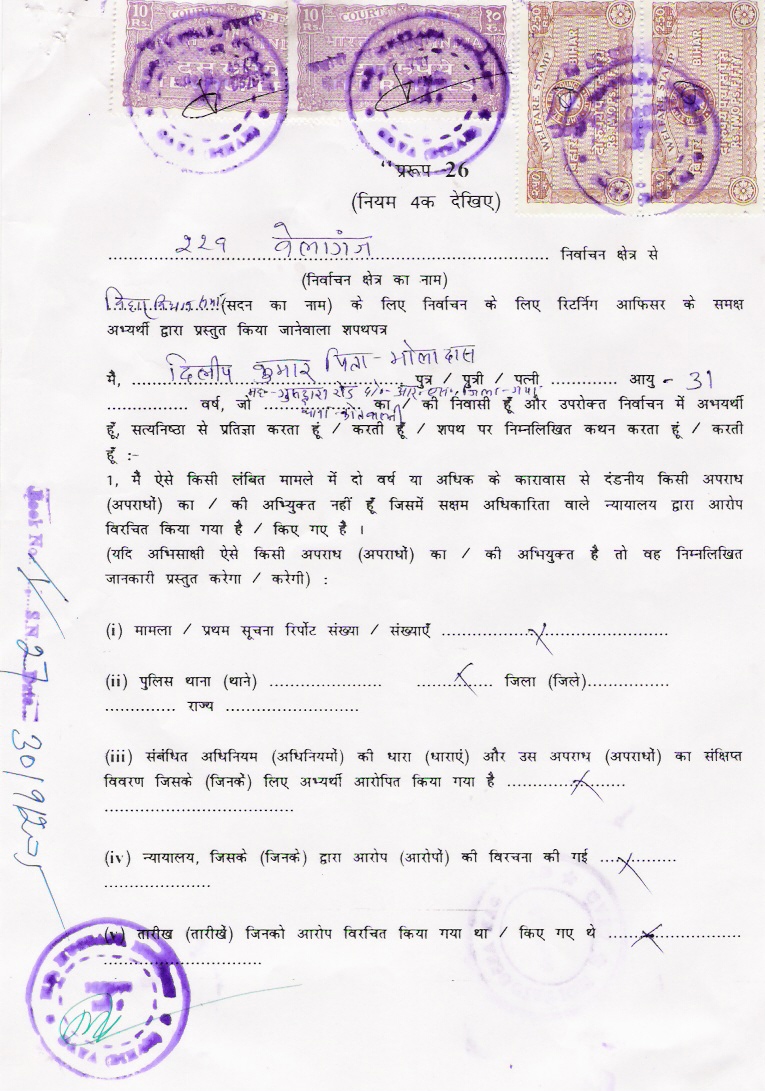 10 Rs. COURT FEE
10 Rs. COURT FEE १० रु.
WELFARE STAMP BIHAR
WELFARE STAMP BIHAR
"प्ररूप -26
(नियम 4क देखिए)
२२९ वेलागंज निर्वाचन क्षेत्र से
(निर्वाचन क्षेत्र का नाम)
विधान सभा (सदन का नाम) के लिए निर्वाचन के लिए रिटर्निग आफिसर के समक्ष
अभ्यर्थी द्वारा प्रस्तुत किया जानेवाला शपथपत्र
दिलीप कुमार पिता - भोला दास
मै, ........................ पुत्र / पुत्री / पत्नी ............ आयु - 31
............... वर्ष, जो ........................ का / की निवासी हूँ और उपरोक्त निर्वाचन में अभयर्थी
हूँ, सत्यनिष्ठा से प्रतिज्ञा करता हूं / करती हूँ / शपथ पर निम्नलिखित कथन करता हूं / करती
हूँ :-
1, मै ऐसे किसी लंबित मामले में दो वर्ष या अधिक के कारावास से दंडनीय किसी अपराध
(अपराधों) का / की अभियुक्त नहीं हूँ जिसमें सक्षम अधिकारिता वाले न्यायालय द्वारा आरोप
विरचित किया गया है / किए गए है ।
(यदि अभिसाक्षी ऐसे किसी अपराध (अपराधों) का / की अभियुक्त है तो वह निम्नलिखित
जानकारी प्रस्तुत करेगा / करेगी) :
(i) मामला / प्रथम सूचना रिर्पोट संख्या / संख्याएँ ........................
(ii) पुलिस थाना (थाने) .................. ............ जिला (जिले).............
............. राज्य .......................
(iii) संबंधित अधिनियम (अधिनियमों) की धारा (धाराएं) और उस अपराध (अपराधों) का संक्षिप्त
विवरण जिसके (जिनके) लिए अभ्यर्थी आरोपित किया गया है ....................
................................
(iv) न्यायालय, जिसके (जिनके) द्वारा आरोप (आरोपों) की विरचना की गई .............
..................
(v) तारीख (तारीखें) जिनको आरोप विरचित किया गया था / किए गए थे ......................
...........................
Book No. S.N. 27 Date